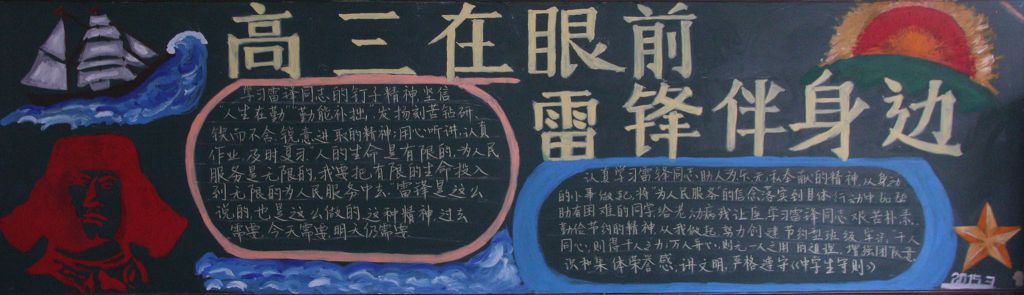 高三在眼前
雷锋伴身边
学习雷锋同志的钉子精神,坚信
人生在勤 勤能补拙,发扬刻苦钻研,
锲而不舍,锐意进取的精神;用心听讲,认真
作业,及时复习.人的生命是有限的,为人民
服务是无限的,我要把有限的生命投入
到无限的为人民服务中去.雷锋是这么
说的,也是这么做的.这种精神过去
需要,今天需要,明天仍需要
认真学习雷锋同志,助人为乐,无私奉献的精神,从身边
的小事做起,将"为人民服务"的信念落实到具体行动中
助有困难的同学 学习雷锋同志 艰苦朴素,
勤俭节约的精神,从我做起,努力创建节约型班级
同心,则得千人之力;万人异心,则无一人之用的道理,增强团队意
识和集体荣誉感,讲文明,严格遵守《中学生守则》
2015.3